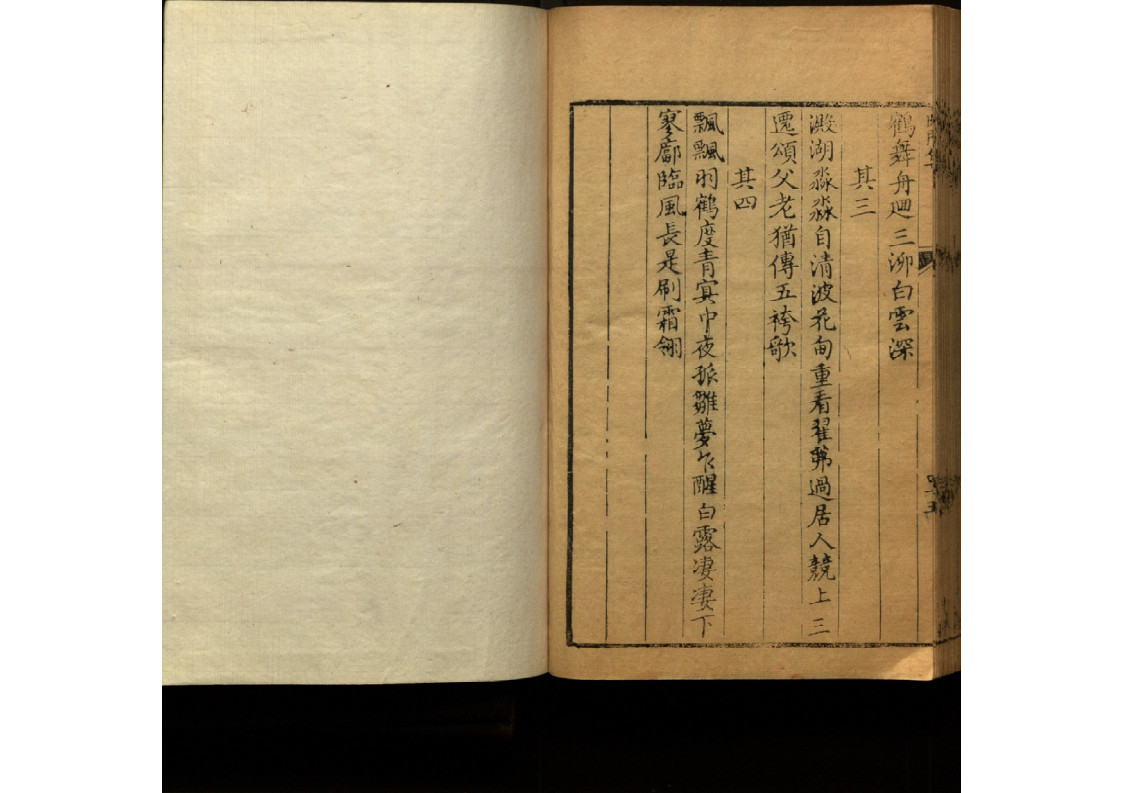 鶴舞舟廻三泖白雲深
其三
澱湖淼淼自清波花甸重看翟茀過居人競上三
遷頌父老猶傳五袴歌
其四
飄飄羽鶴度青冥中夜孤雛夢乍醒白露凄凄下
寥廓臨風長是刷霜翎